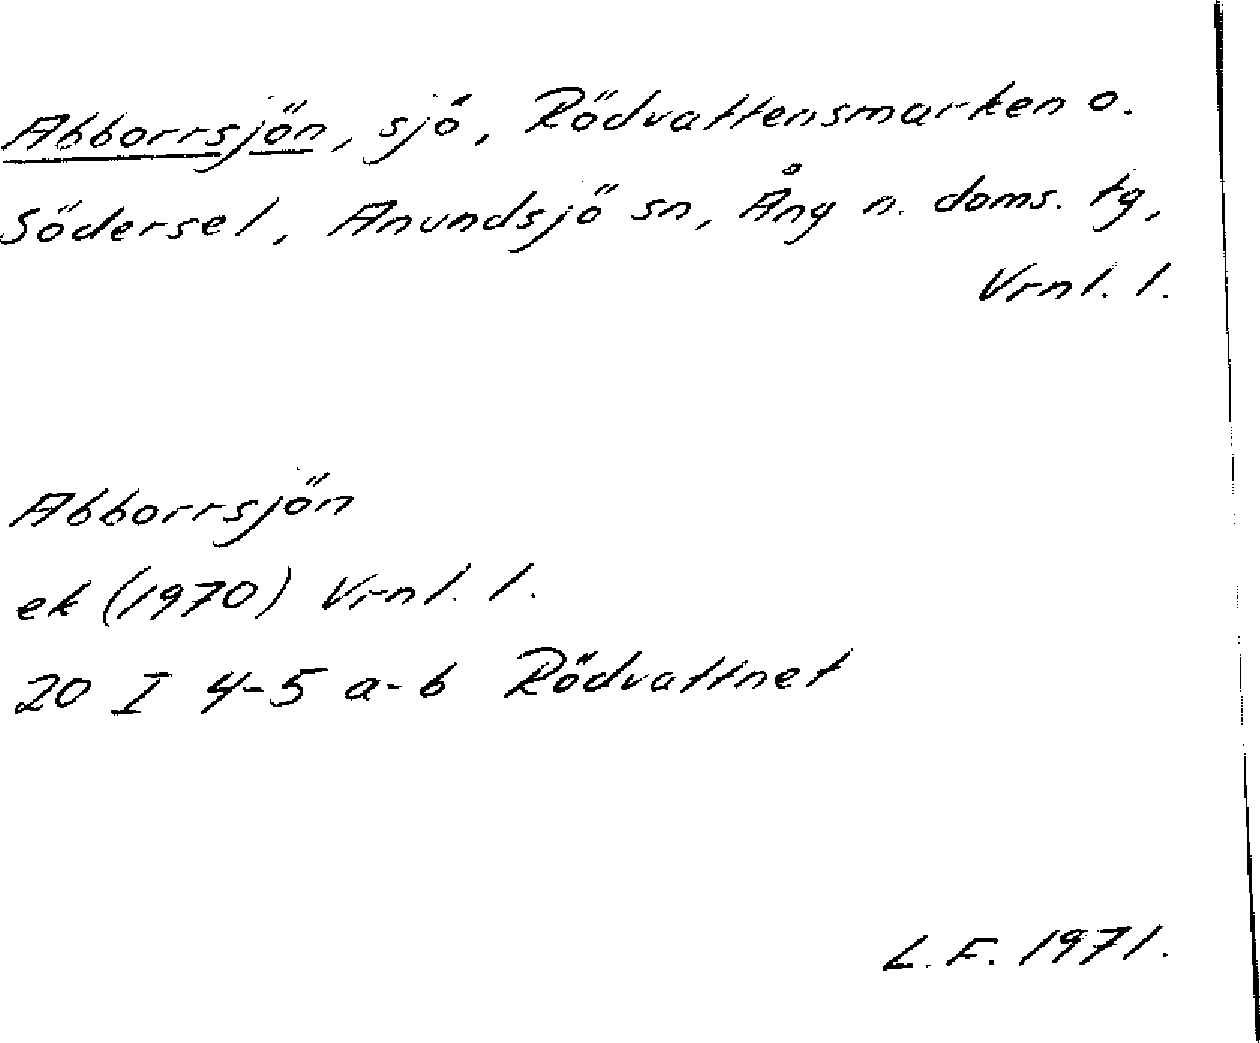 Abborrsjön, sjö, Rödvattensmarken o.
Södersel, Anundsjö sn, Ång n. doms. tg,
Vrnl. l.
Abborrsjön
ek (1970) Vrnl. l.
20 I 4-5 a-b Rödvattnet
L. F. 1971.